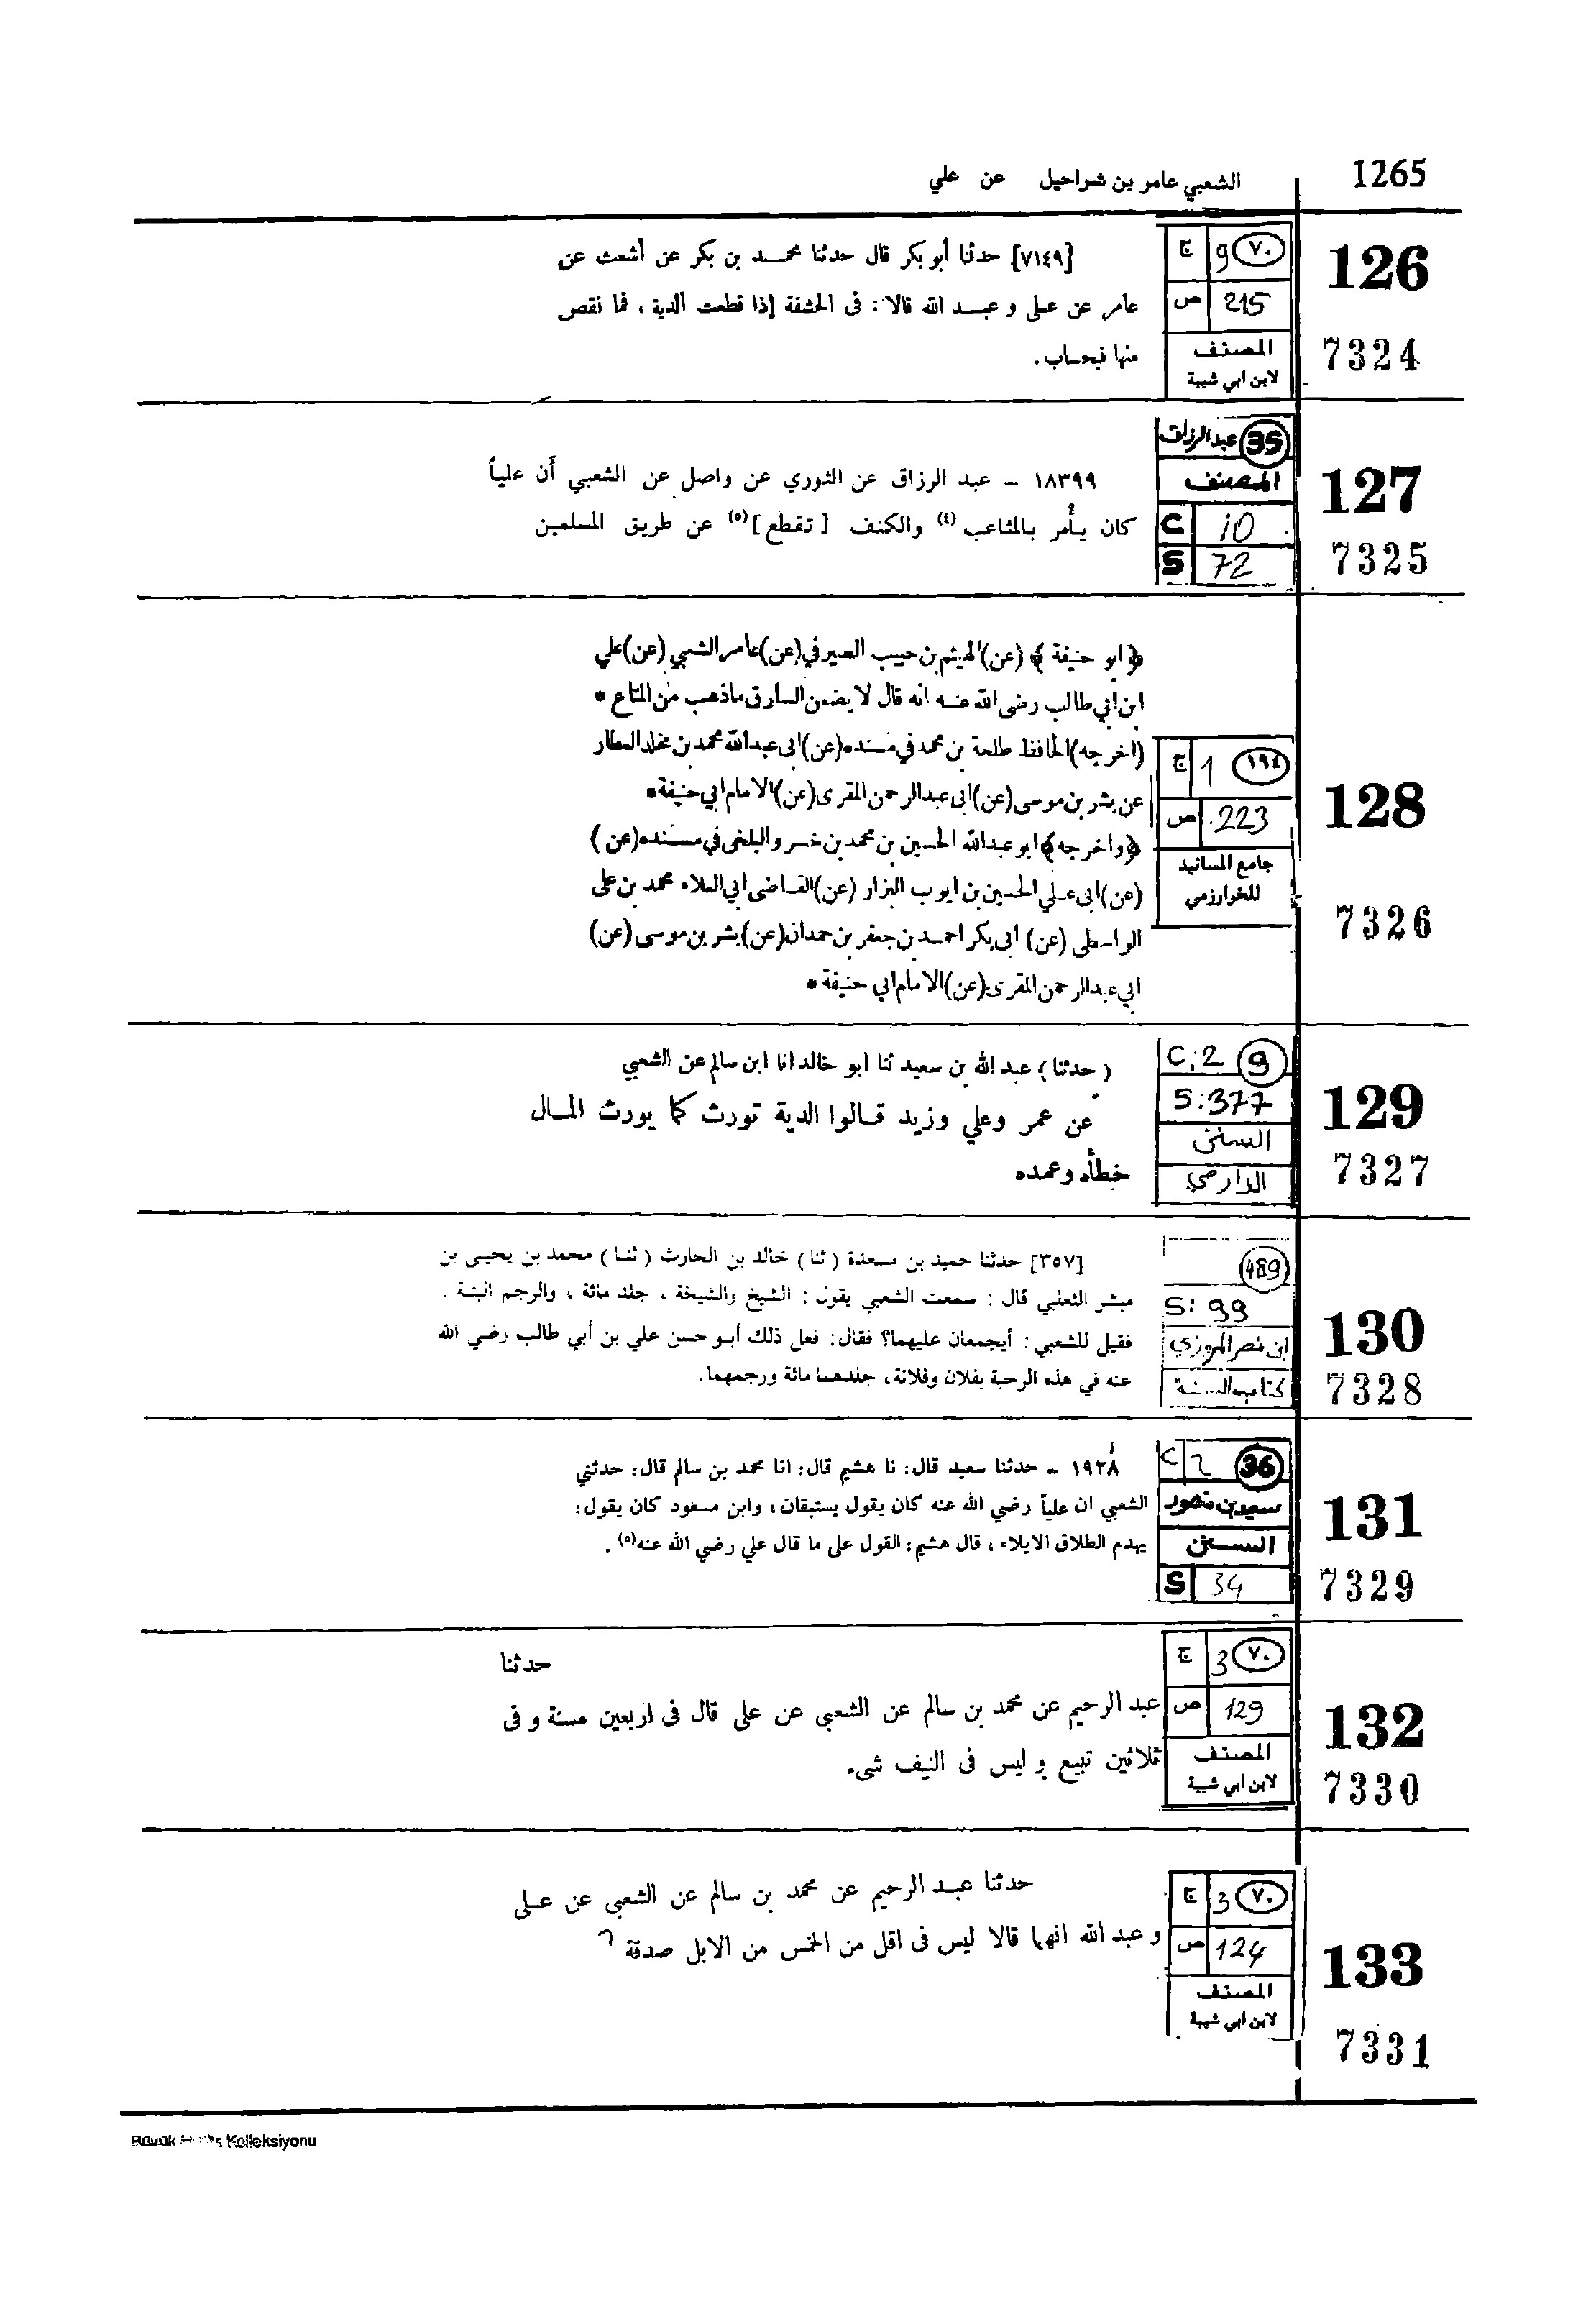 1265
الشعبي عامر بن شراحيل عن علي
126
7324
ج 9 ٧٠
ص 215
المصنف
لابن ابي شيبة
[٧١٤٩] حدثنا أبو بكر قال حدثنا محمد بن بكر عن أشعث عن
عامر عن على و عبد الله قالا: فى الحشفة إذا قطعت الدية ، فما نقص
منها فبحساب.
127
7325
عبد الرزاق 35
المصنف
C 10
S 72
١٨٣٩٩ - عبد الرزاق عن الثوري عن واصل عن الشعبي أن علياً
كان يأمر بالمثاعب (٤) والكنف [ تقطع ](٥) عن طريق المسلمين
128
7326
ج 1 ١٩٤
ص 223
جامع المسانيد
للخوارزمي
﴿ابو حنيفة﴾ (عن) الهيثم بن حبيب الصيرفي (عن) عامر الشعبي (عن) علي
ابن ابي طالب رضى الله عنه انه قال لا يضمن السارق ماذهب من المتاع *
(اخرجه) الحافظ طلحة بن محمد في مسنده (عن) ابى عبد الله محمد بن مخلد العطار
عن بشر بن موسى (عن) ابى عبد الرحمن المقرى (عن) الامام ابي حنيفة *
﴿واخرجه﴾ ابو عبدالله الحسين بن محمد بن خسرو البلخى في مسنده (عن )
(عن) ابى علي الحسين بن ايوب البزار (عن) القاضى ابي العلاء محمد بن على
الواسطى (عن) ابى بكر احمد بن جعفر بن حمدان (عن) بشر بن موسى (عن)
ابي عبد الرحمن المقرى (عن) الامام ابي حنيفة *
129
7327
C:2 9
S:377
السنن
الدارمي
( حدثنا ) عبد الله بن سعيد ثنا ابو خالد انا ابن سالم عن الشعبي
عن عمر وعلي وزيد قالوا الدية تورث كما يورث المال
خطأه وعمده
130
7328
489
S: 99
ابن نصر المروزي
كتاب السنة
[٣٥٧] حدثنا حميد بن مسعدة ( ثنا ) خالد بن الحارث ( ثنا ) محمد بن يحيى بن
مبشر الثعلبي قال : سمعت الشعبي يقول : الشيخ والشيخة ، جلد مائة ، والرجم البتة .
فقيل للشعبي : أيجمعان عليهما؟ فقال: فعل ذلك أبو حسن علي بن أبي طالب رضي الله
عنه في هذه الرحبة بفلان وفلانة، جلدهما مائة ورجمهما.
131
7329
C 2 36
سعيد بن منصور
السنن
S 34
١٩٢٨ - حدثنا سعيد قال: نا هشيم قال: انا محمد بن سالم قال: حدثني
الشعبي ان علياً رضي الله عنه كان يقول يستبقان، وابن مسعود كان يقول:
يهدم الطلاق الايلاء ، قال هشيم: القول على ما قال علي رضي الله عنه(٥) .
132
7330
ج 3 ٧٠
ص 129
المصنف
لابن ابي شيبة
حدثنا
عبد الرحيم عن محمد بن سالم عن الشعبى عن على قال فى اربعين مسنة و فى
ثلاثين تبيع و ليس فى النيف شى.
133
7331
ج 3 ٧٠
ص 124
المصنف
لابن ابي شيبة
حدثنا عبد الرحيم عن محمد بن سالم عن الشعبى عن على
و عبد الله انهما قالا ليس فى اقل من الخمس من الابل صدقة ٦
Kolleksiyonu